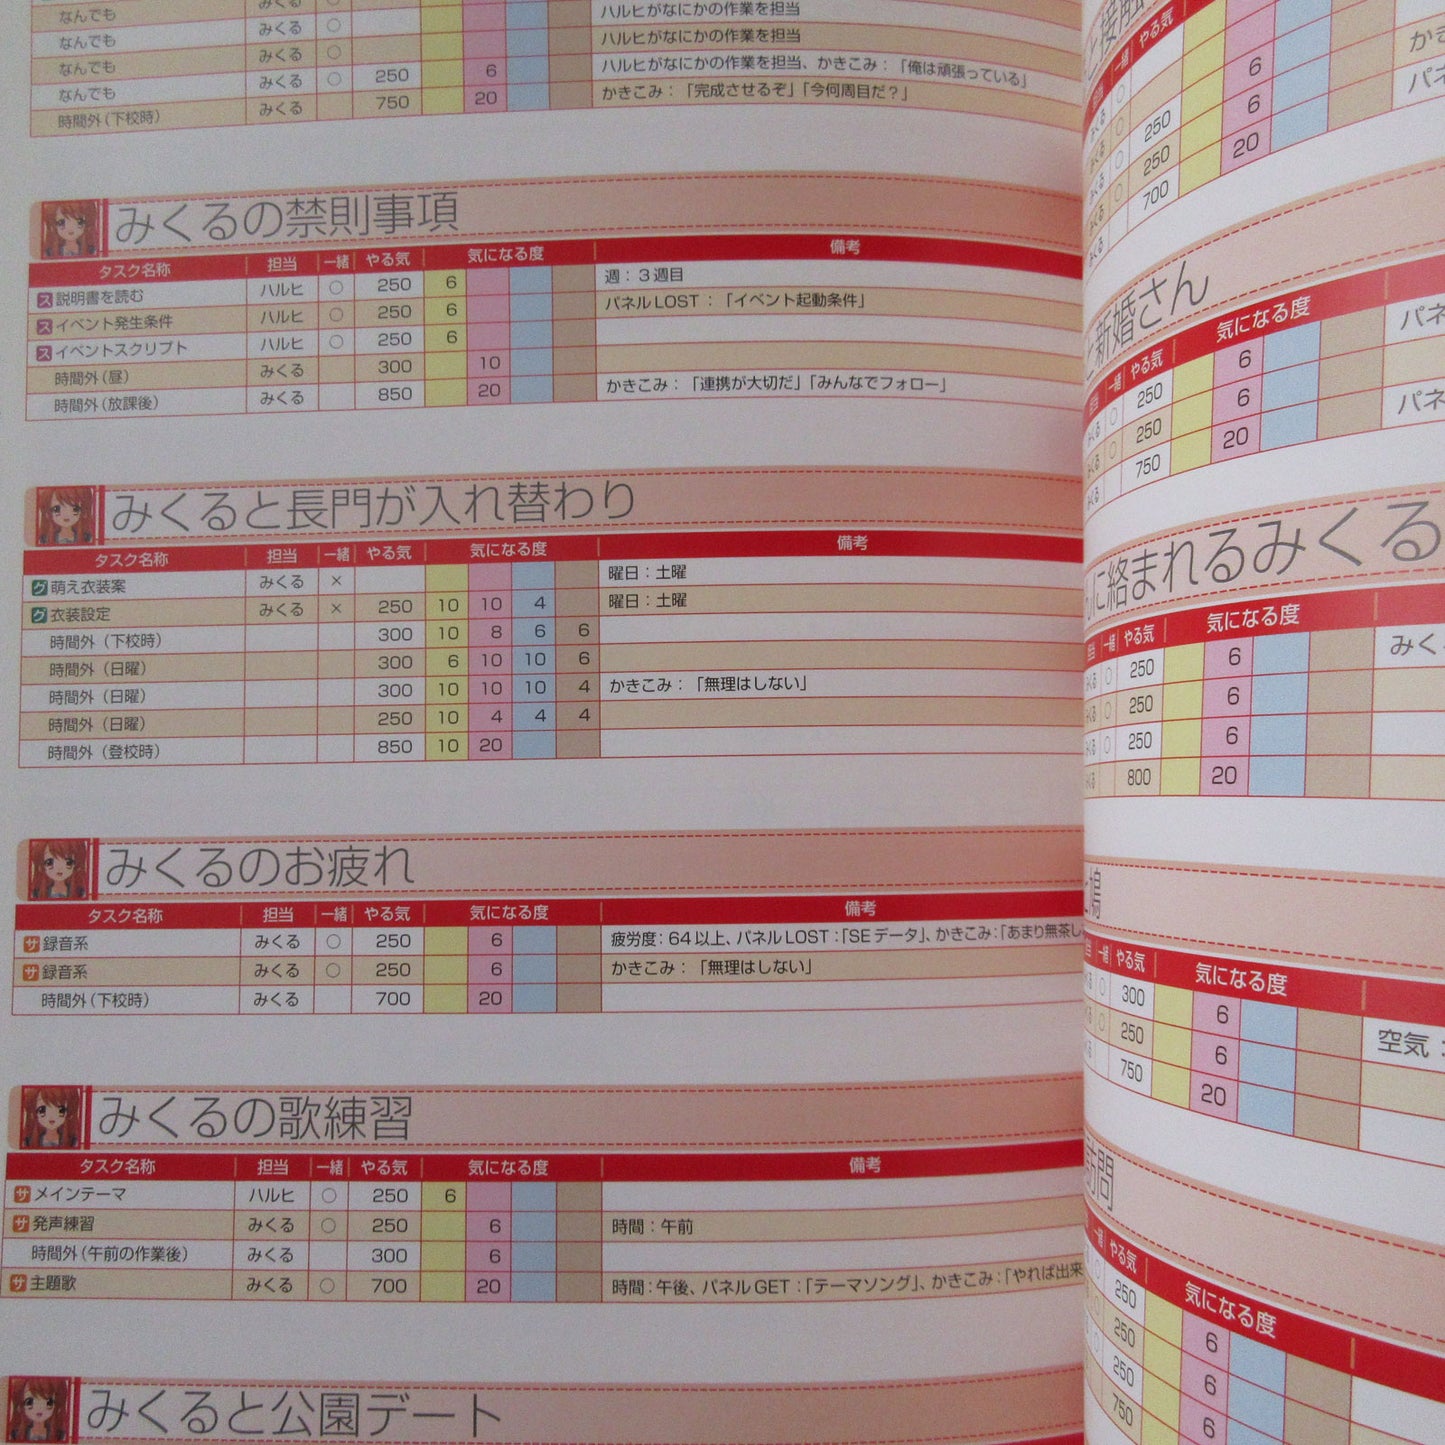 なんでも みくる ○ ハルヒがなにかの作業を担当
なんでも みくる ○ ハルヒがなにかの作業を担当
なんでも みくる ○ ハルヒがなにかの作業を担当、かきこみ：「俺は頑張っている」
なんでも みくる ○ 250 6 かきこみ：「完成させるぞ」「今何周目だ？」
時間外（下校時） みくる 750 20
みくるの禁則事項
タスク名称 担当 一緒 やる気 気になる度 備考
ス 説明書を読む ハルヒ ○ 250 6 週：３週目
ス イベント発生条件 ハルヒ ○ 250 6 パネルLOST：「イベント起動条件」
ス イベントスクリプト ハルヒ ○ 250 6
時間外（昼） みくる 300 10
時間外（放課後） みくる 850 20 かきこみ：「連携が大切だ」「みんなでフォロー」
みくると長門が入れ替わり
タスク名称 担当 一緒 やる気 気になる度 備考
グ 萌え衣装案 みくる × 曜日：土曜
グ 衣装設定 みくる × 250 10 10 4 曜日：土曜
時間外（下校時） 300 10 8 6 6
時間外（日曜） 300 6 10 10 6
時間外（日曜） 300 10 10 10 4 かきこみ：「無理はしない」
時間外（日曜） 250 10 4 4 4
時間外（登校時） 850 10 20
みくるのお疲れ
タスク名称 担当 一緒 やる気 気になる度 備考
サ 録音系 みくる ○ 250 6 疲労度：64以上、パネルLOST：「SEデータ」、かきこみ：「あまり無茶し
サ 録音系 みくる ○ 250 6 かきこみ：「無理はしない」
時間外（下校時） みくる 700 20
みくるの歌練習
タスク名称 担当 一緒 やる気 気になる度 備考
サ メインテーマ ハルヒ ○ 250 6
サ 発声練習 みくる ○ 250 6 時間：午前
時間外（午前の作業後） みくる 300 6
サ 主題歌 みくる ○ 700 20 時間：午後、パネルGET：「テーマソング」、かきこみ：「やれば出来
みくると公園デート
と接触
担当 一緒 やる気
みくる ○ 6 かき
みくる ○ 250 6 パネ
みくる ○ 250 20
みくる ○ 700
と新婚さん
担当 一緒 やる気 気になる度
みくる ○ 250 6 パネ
みくる ○ 250 6
みくる 750 20 パネ
に絡まれるみくる
担当 一緒 やる気 気になる度
みくる ○ 250 6 みく
みくる ○ 250 6
みくる ○ 250 6
みくる 800 20
と鳩
一緒 やる気 気になる度
○ 300 6
○ 250 6 空気：
750 20
訪問
一緒 やる気 気になる度
250 6
250 6
250 6
750